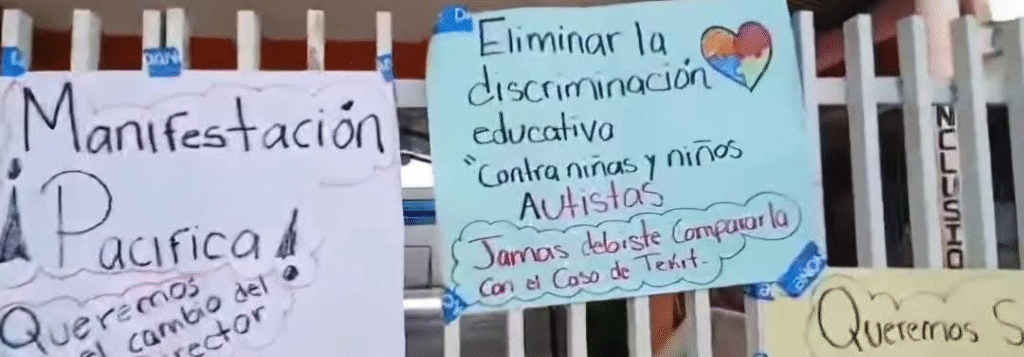 Manifestación
¡Pacifica!
Queremos
el cambio del
rector
Eliminar la
discriminación
educativa
"Contra niñas y niños
Autistas
Jamas debiste Compararla
Con el Caso de Tekit.
NCLUSIO
Queremos S